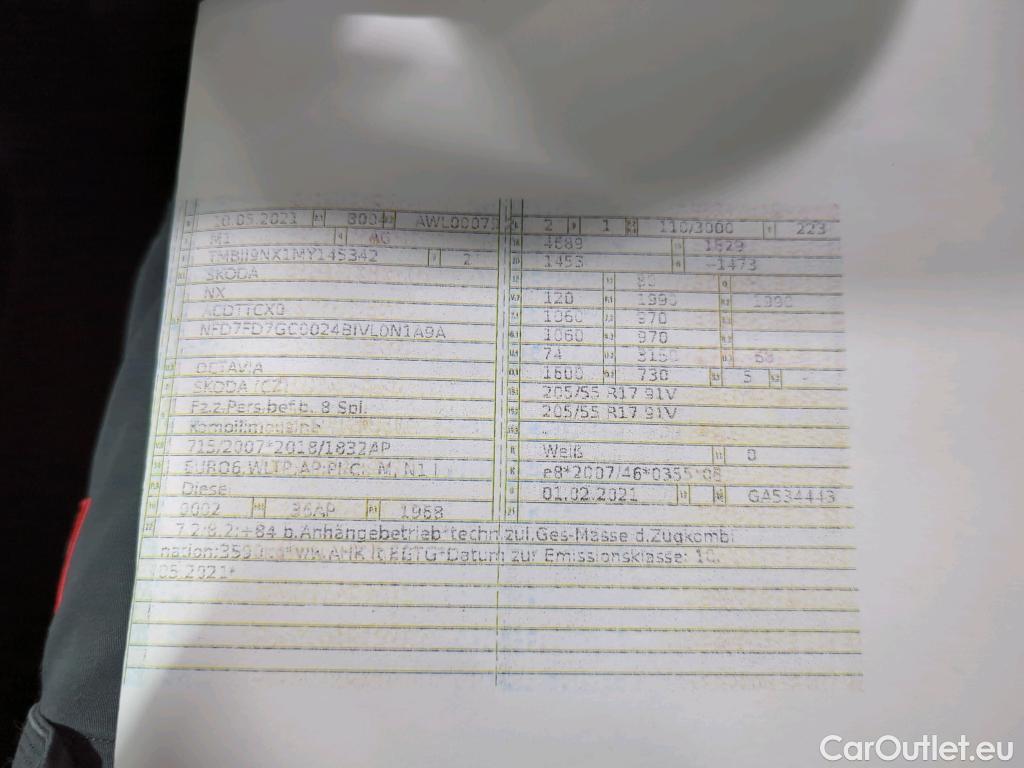 10.05.2021 8004 AWL00075
M1 AG
TMBJJ9NX1MY145342 2
SKODA
NX
ACDTTCX0
NFD7FD7GC0024BIVL0N1A9A
OCTAVIA
SKODA (CZ)
Fz.z.Pers.bef.b. 8 Spl.
Kombilimousine
715/2007*2018/1832AP
EURO6,WLTP,AP:PI,CI, M, N1 I
Diesel
0002 36AP 1968
2 1 110/3000 223
4689 1829
1453 -1473
80 -
120 1990 1990
1060 970 -
1060 970 -
74 3150 68
1600 730 5 -
205/55 R17 91V
205/55 R17 91V
-
Weiß 0
e8*2007/46*0355*08
01.02.2021 GA534443
7.2:8.2:+84 b.Anhängebetrieb*techn.zul.Ges-Masse d.Zugkombi
nation:3590
Datum zur Emissionsklasse: 10.
05.2021*
CarOutlet.eu